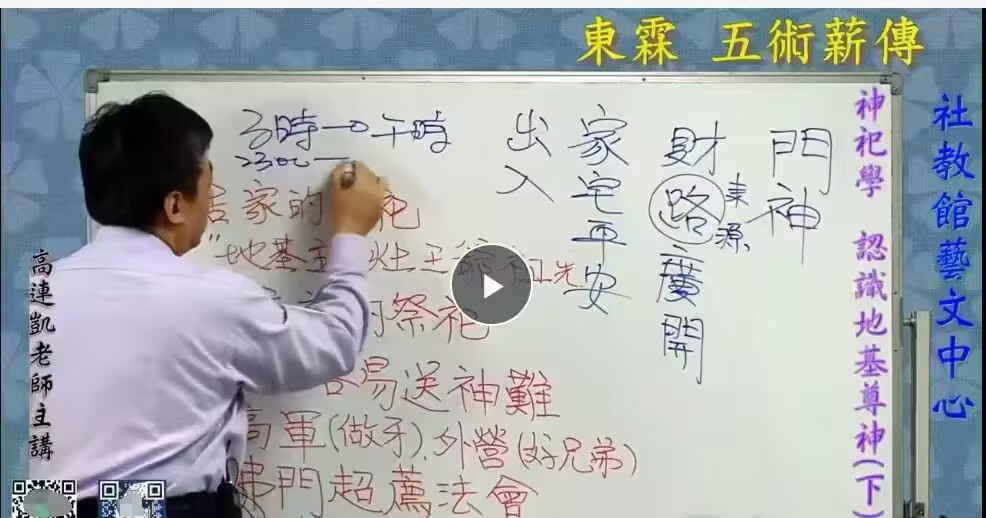 東霖 五術薪傳
社教館藝文中心
神祀學 認識地基尊神(下)
高連凱老師主講
門神
財路廣開
東
源
家宅平安
出入
子時一0午時
2300一
居家的 祀
"地基主 灶王爺 祖先
的祭祀
容易送神難
犒軍(做牙).外營(好兄弟)
佛門超薦法會